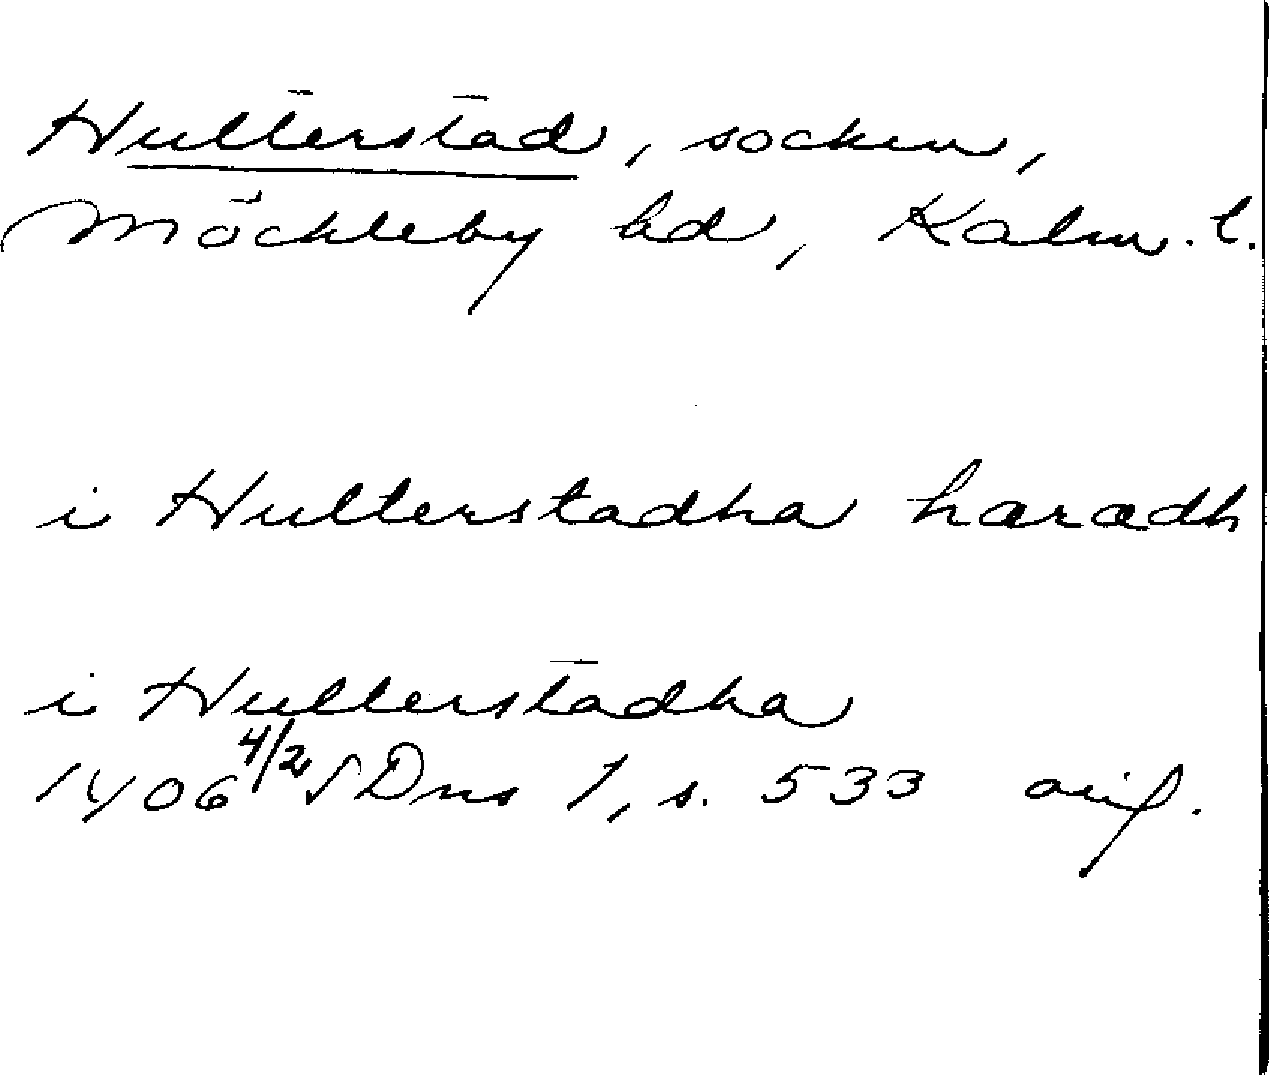 Hulterstad, socken,
Möckleby hd, Kalm. l.
i Hulterstadha haradh
i Hulterstadha
1406 4/2 SDns 1, s. 533 avif.